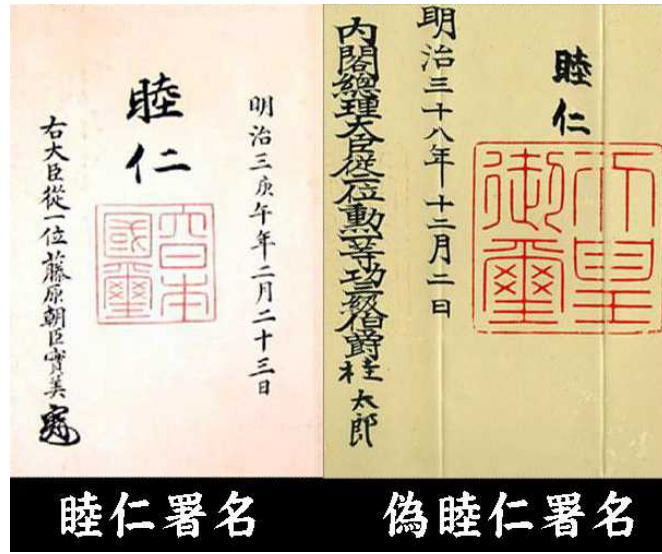 明治三庚午年二月二十三日
睦仁
大日本
國璽
右大臣從一位藤原朝臣實美
睦仁
天皇
御璽
明治三十八年十二月二日
内閣總理大臣從二位勲一等功三級伯爵桂太郎
睦仁署名
偽睦仁署名